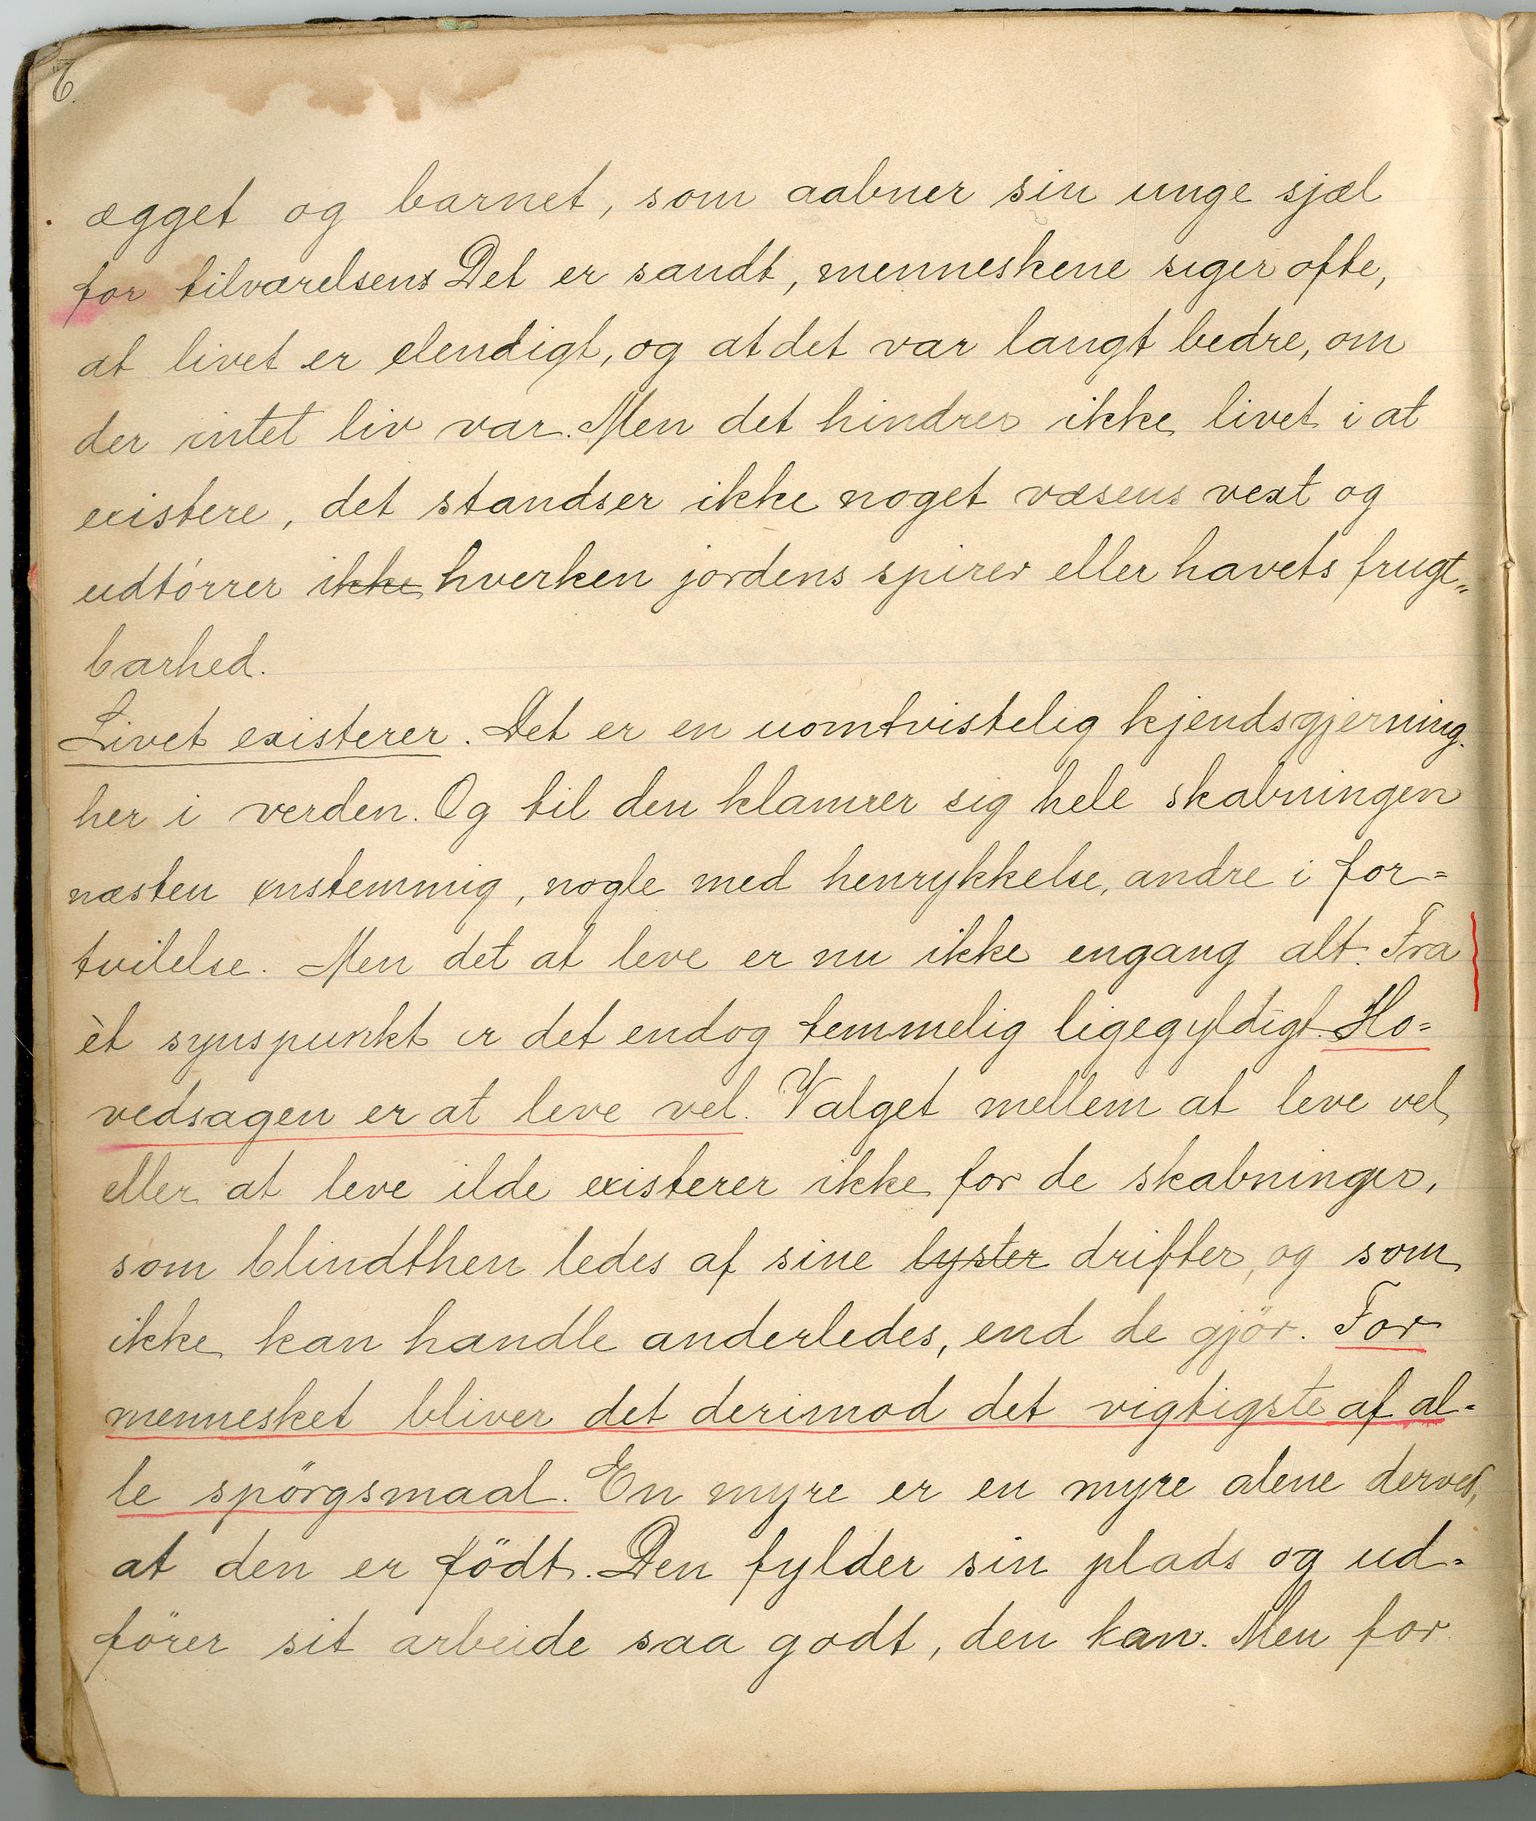 6.
ægget og barnet, som aabner sin unge sjæl
for tilværelsens Det er sandt, menneskene siger ofte,
at livet er elendigt, og at det var langt bedre, om
der intet liv var. Men det hindrer ikke livet i at
existere, det standser ikke noget væsens vext og
udtørrer ikke hverken jordens spirer eller havets frugt„
barhed.
Livet existerer. Det er en uomtvistelig kjendsgjerning.
her i verden. Og til den klamrer sig hele skabningen
næsten enstemmig, nogle med henrykkelse, andre i for=
tvilelse. Men det at leve er nu ikke engang alt. Fra
èt synspunkt er det endog temmelig ligegyldigt. Ho=
vedsagen er at leve vel. Valget mellem at leve vel
eller at leve ilde existerer ikke for de skabninger,
som blindthen ledes af sine lyster drifter, og som
ikke kan handle anderledes, end de gjör. For
mennesket bliver det derimod det vigtigste af al-
le spörgsmaal. En myre er en myre alene derved,
at den er födt. Den fylder sin plads og ud-
förer sit arbeide saa godt, den kan. Men for